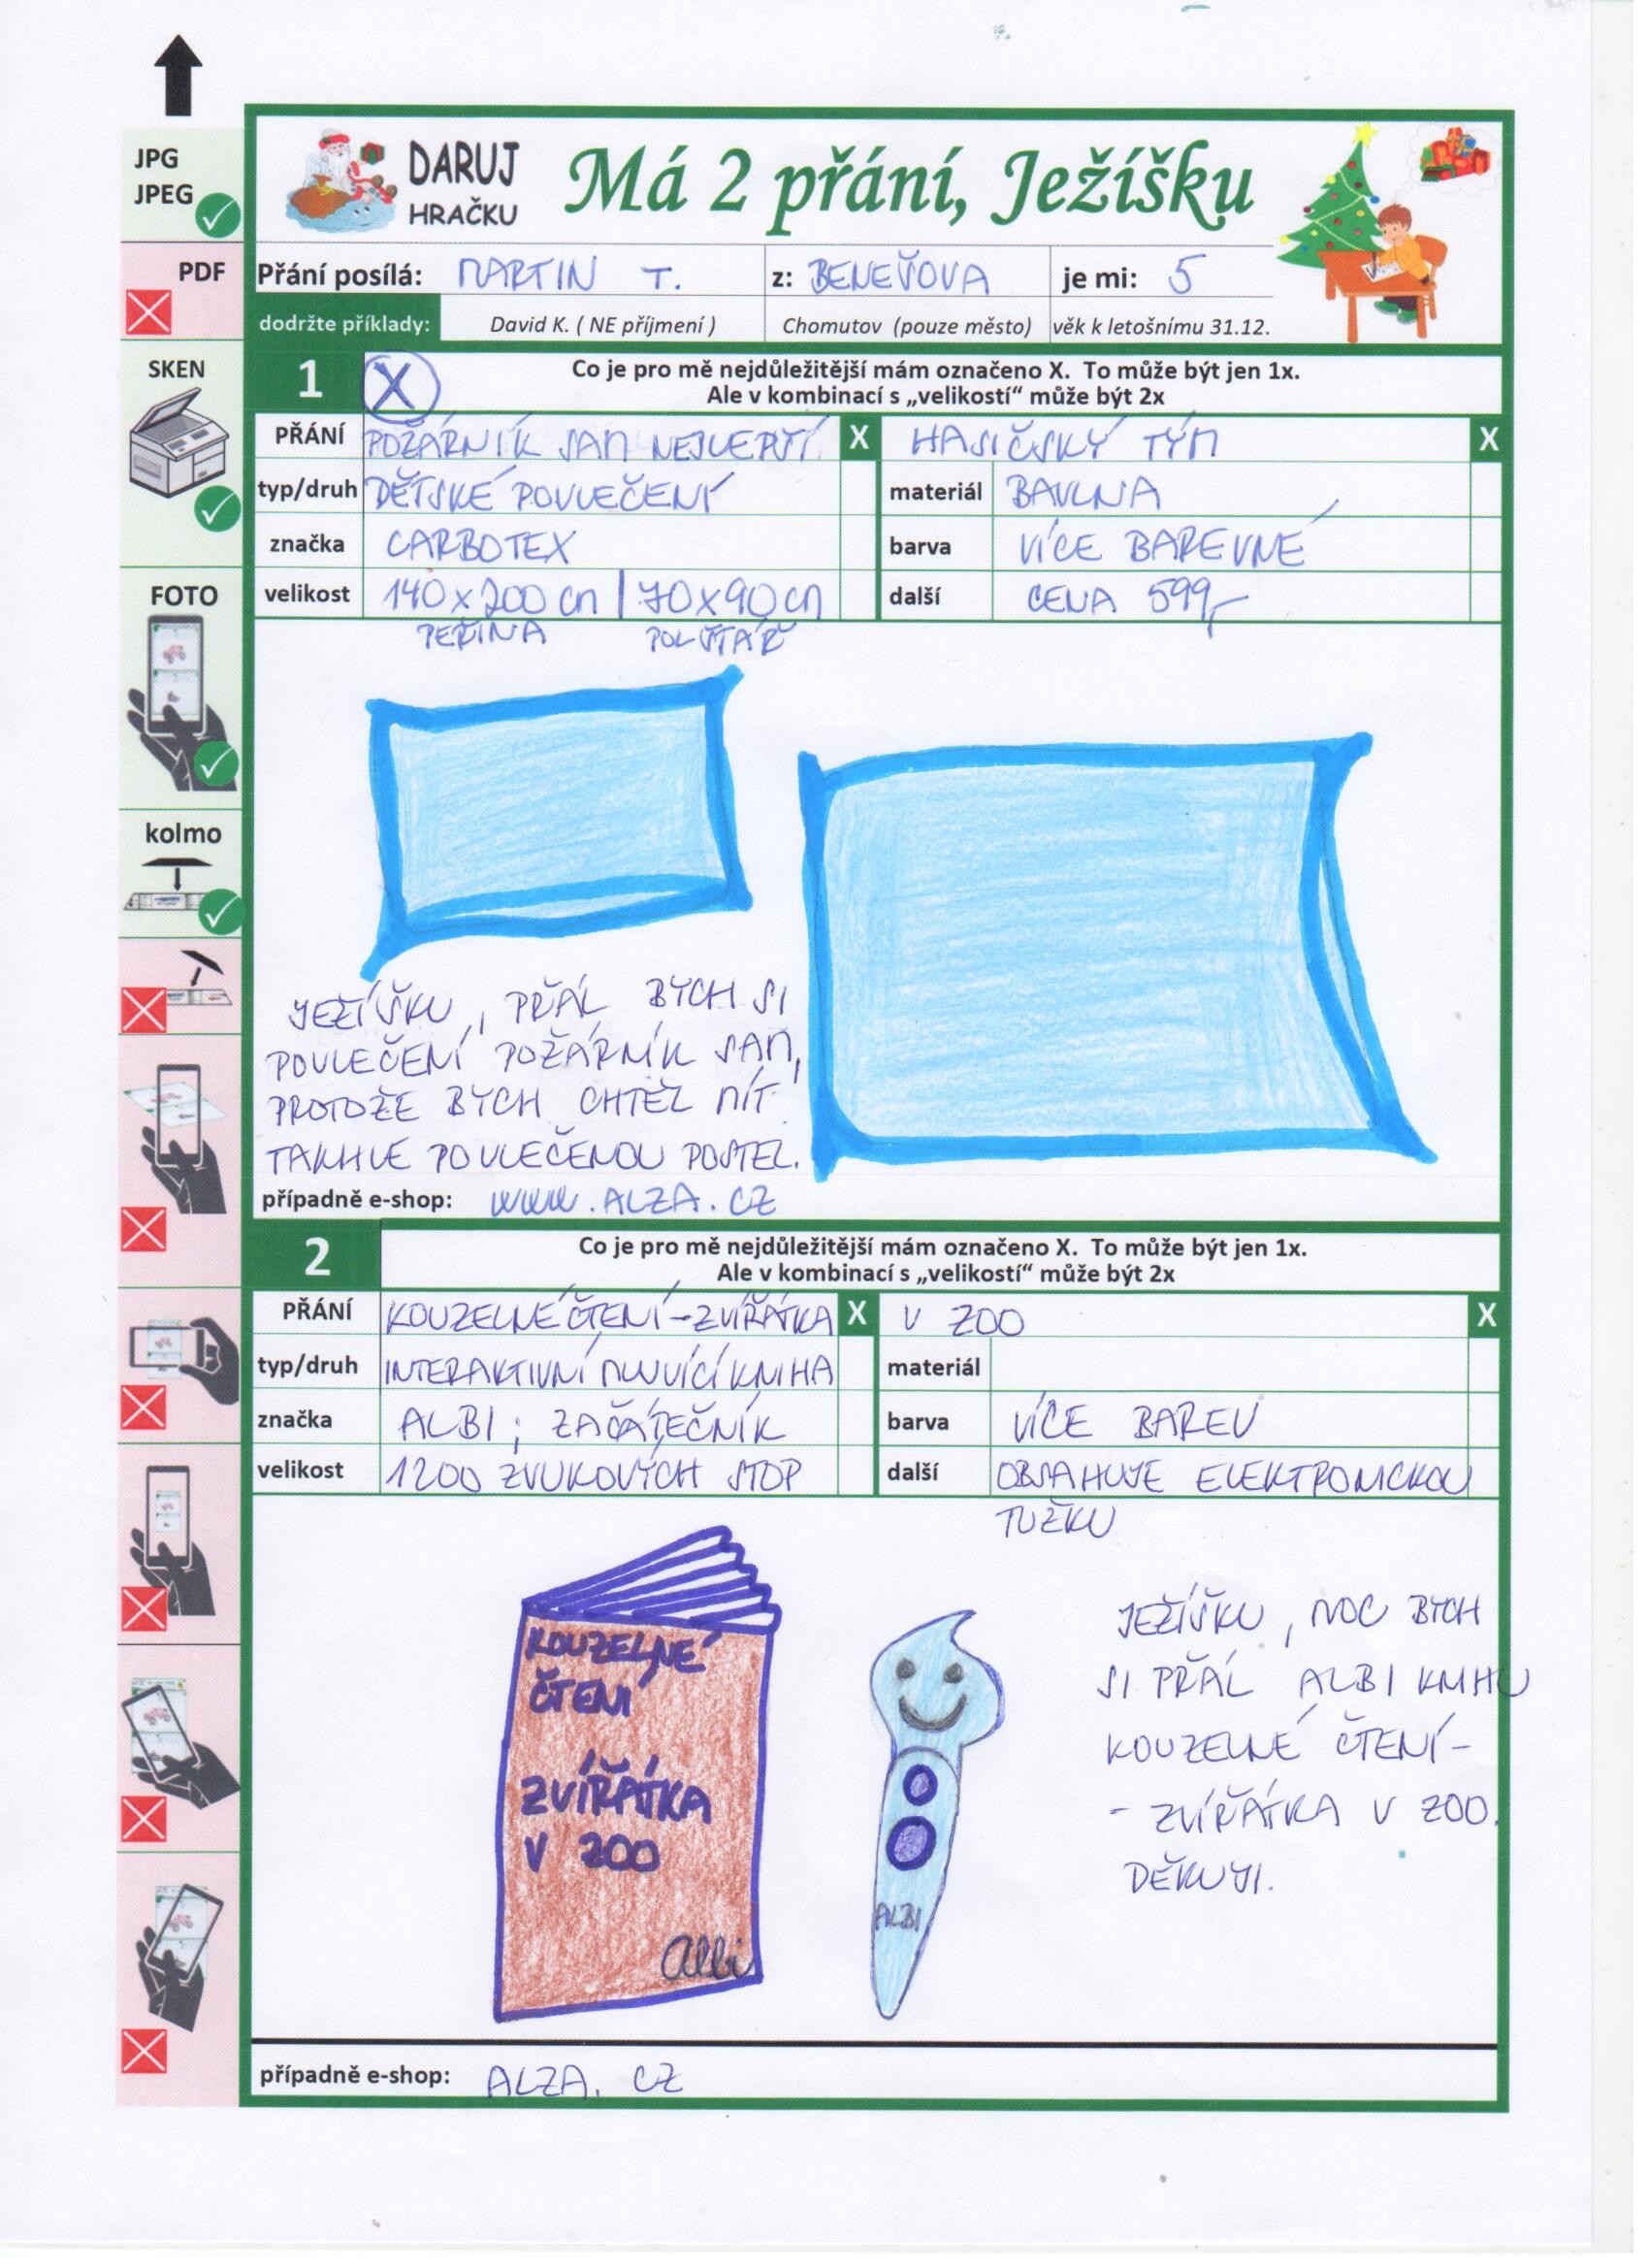 JPG
JPEG
PDF
SKEN
FOTO
kolmo
DARUJ
HRAČKU
Má 2 přání, Ježíšku
Přání posílá: MARTIN T. z: BENEŠOVA je mi: 5
dodržte příklady: David K. ( NE příjmení ) Chomutov (pouze město) věk k letošnímu 31.12.
1 X Co je pro mě nejdůležitější mám označeno X. To může být jen 1x.
Ale v kombinací s „velikostí“ může být 2x
PŘÁNÍ POŽÁRNÍK SAM NEJLEPŠÍ X HASIČSKÝ TÝM X
typ/druh DĚTSKÉ POVLEČENÍ materiál BAVLNA
značka CARBOTEX barva VÍCE BAREVNÉ
velikost 140x200 cm | 70x90 cm další CENA 599,-
PEŘINA POLŠTÁŘ
JEŽÍŠKU, PŘÁL BYCH SI
POVLEČENÍ POŽÁRNÍK SAM,
PROTOŽE BYCH CHTĚL MÍT
TAKHLE POVLEČENOU POSTEL.
případně e-shop: WWW.ALZA.CZ
2 Co je pro mě nejdůležitější mám označeno X. To může být jen 1x.
Ale v kombinací s „velikostí“ může být 2x
PŘÁNÍ KOUZELNÉ ČTENÍ-ZVÍŘÁTKA X V ZOO X
typ/druh INTERAKTIVNÍ MLUVÍCÍ KNIHA materiál
značka ALBI; ZAČÁTEČNÍK barva VÍCE BAREV
velikost 1200 ZVUKOVÝCH STOP další OBSAHUJE ELEKTRONICKOU
TUŽKU
KOUZELNÉ
ČTENÍ
ZVÍŘÁTKA
V ZOO
Albi
ALBI
JEŽÍŠKU, MOC BYCH
SI PŘÁL ALBI KNIHU
KOUZELNÉ ČTENÍ-
- ZVÍŘÁTKA V ZOO.
DĚKUJI.
případně e-shop: ALZA.CZ